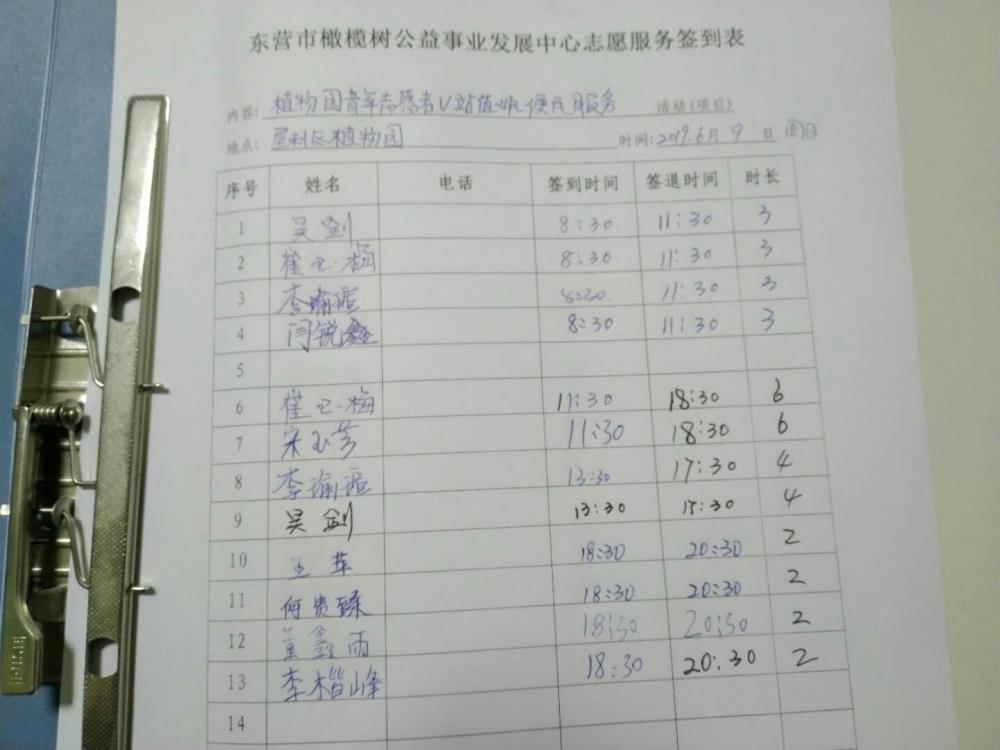 东营市橄榄树公益事业发展中心志愿服务签到表
内容: 植物园青年志愿者V站值班便民服务 活动(项目)
地点: 垦利区植物园 时间: 2019.6月9日 周日
序号 姓名 电话 签到时间 签退时间 时长
1 吴剑 8:30 11:30 3
2 崔玉梅 8:30 11:30 3
3 李瑜 8:30 11:30 3
4 闫锐鑫 8:30 11:30 3
5
6 崔玉梅 11:30 18:30 6
7 宋玉芳 11:30 18:30 6
8 李瑜 13:30 17:30 4
9 吴剑 13:30 17:30 4
10 王苹 18:30 20:30 2
11 何贵臻 18:30 20:30 2
12 董鑫雨 18:30 20:30 2
13 李楷峰 18:30 20:30 2
14